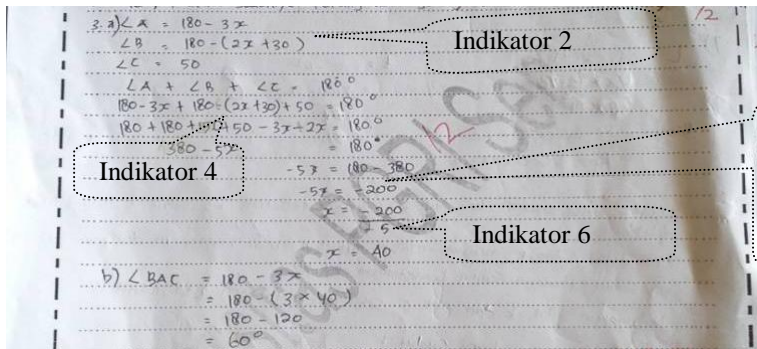 12
3. a) ∠A = 180 - 3x
∠B = 180 - (2x + 30)
Indikator 2
∠C = 50
∠A + ∠B + ∠C = 180°
180 - 3x + 180 - (2x + 30) + 50 = 180°
180 + 180 + 50 - 3x - 2x = 180°
12
380 - 5x = 180°
Indikator 4
-5x = 180 - 380
-5x = -200
x = -200
-5
Indikator 6
x = 40
b) ∠BAC = 180 - 3x
= 180 - (3 × 40)
= 180 - 120
= 60°
PGRI